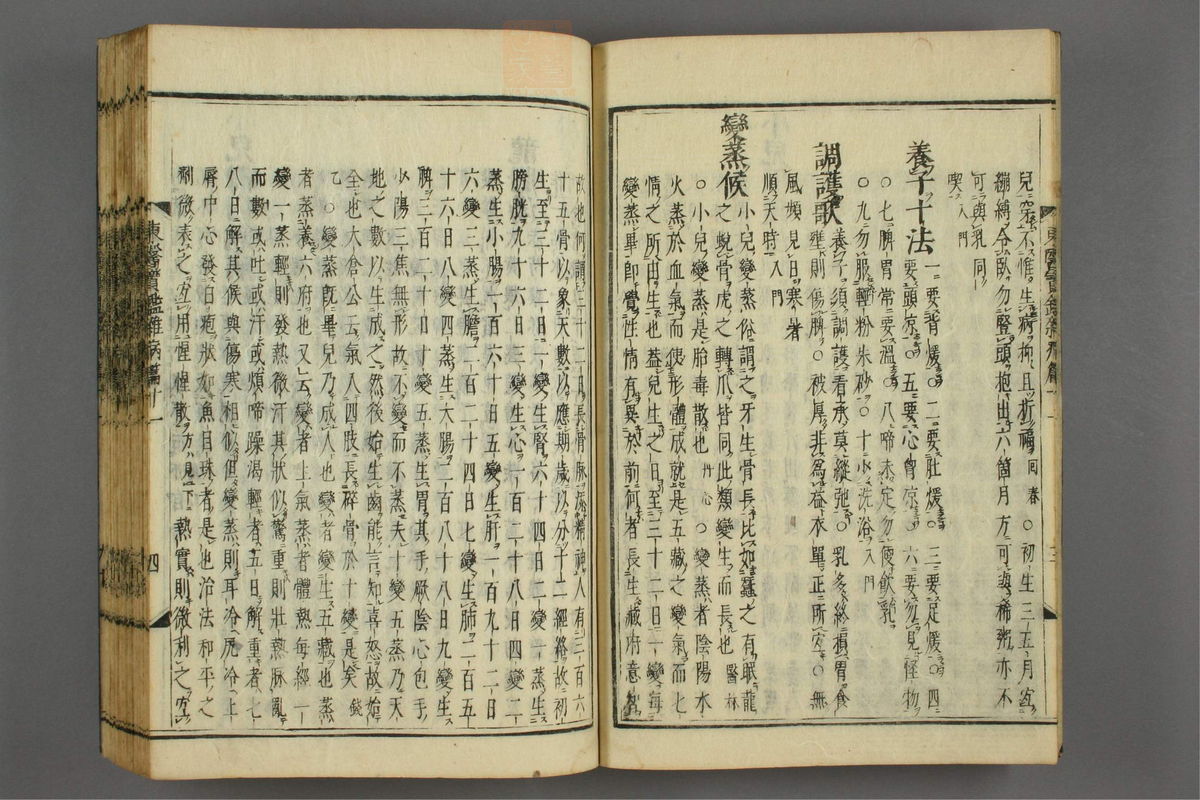 兒穿不惟生病抑且折福回春○初生三五月宜
繃縛令臥勿竪頭抱出六箇月方可與稀粥亦不
可與乳同
喫入門
養子十法一要背煖○二要肚煖○三要足煖○四
要頭凉○五要心胷凉○六要勿見怪物
○七脾胃常要溫○八啼未定勿便飮乳
○九勿服輕粉朱砂○十少洗浴入門
調護歌養子須調護看承莫縱弛○乳多終損胃食
壅則傷脾○被厚非爲益衣單正所宜○無
風頻見日寒暑
順天時入門
變蒸候小兒變蒸俗謂之牙生骨長比如蠶之有眠龍
之蛻骨虎之轉爪皆同此類變生而長也醫林
○小兒變蒸是胎毒散也門心○變蒸者陰陽水
火蒸於血氣而使形體成就是五藏之變氣而七
情之所由生也盖兒生之日至三十二日一變每
變蒸畢卽覺性情有異於前何者長生藏府意智
故也何謂三十二日長骨脉添精神人有三百六
十五骨以象天數以應期歲以分十二經絡故初
生至三十二日一變生腎六十四日二變一蒸生
膀胱九十六日三變生心一百二十八日四變二
蒸生小腸一百六十日五變生肝一百九十二日
六變三蒸生膽二百二十四日七變生肺二百五
十六日八變四蒸生大腸二百八十八日九變生
脾三百二十日十變五蒸生胃其手厥陰心包手
少陽三焦無形故不變而不蒸夫十變五蒸乃天
地之數以生成之然後始生齒能言知喜怒故始
全也大倉公云氣入四肢長碎骨於十變是矣錢
乙○變蒸旣畢兒乃成人也變者變生五藏也蒸
者蒸養六府也又云變者上氣蒸者體熱每經一
變一蒸輕則發熱微汗其狀似驚重則壯熱脉亂
而數或吐或汗或煩啼躁渴輕者五日解重者七
八日解其候與傷寒相似但變蒸則耳冷尻冷上
脣中心發白疱狀如魚目珠者是也治法和平之
劑微表之宜用惺惺散方見下熱實則微利之宜
東醫寶鑑雜病篇十一
四